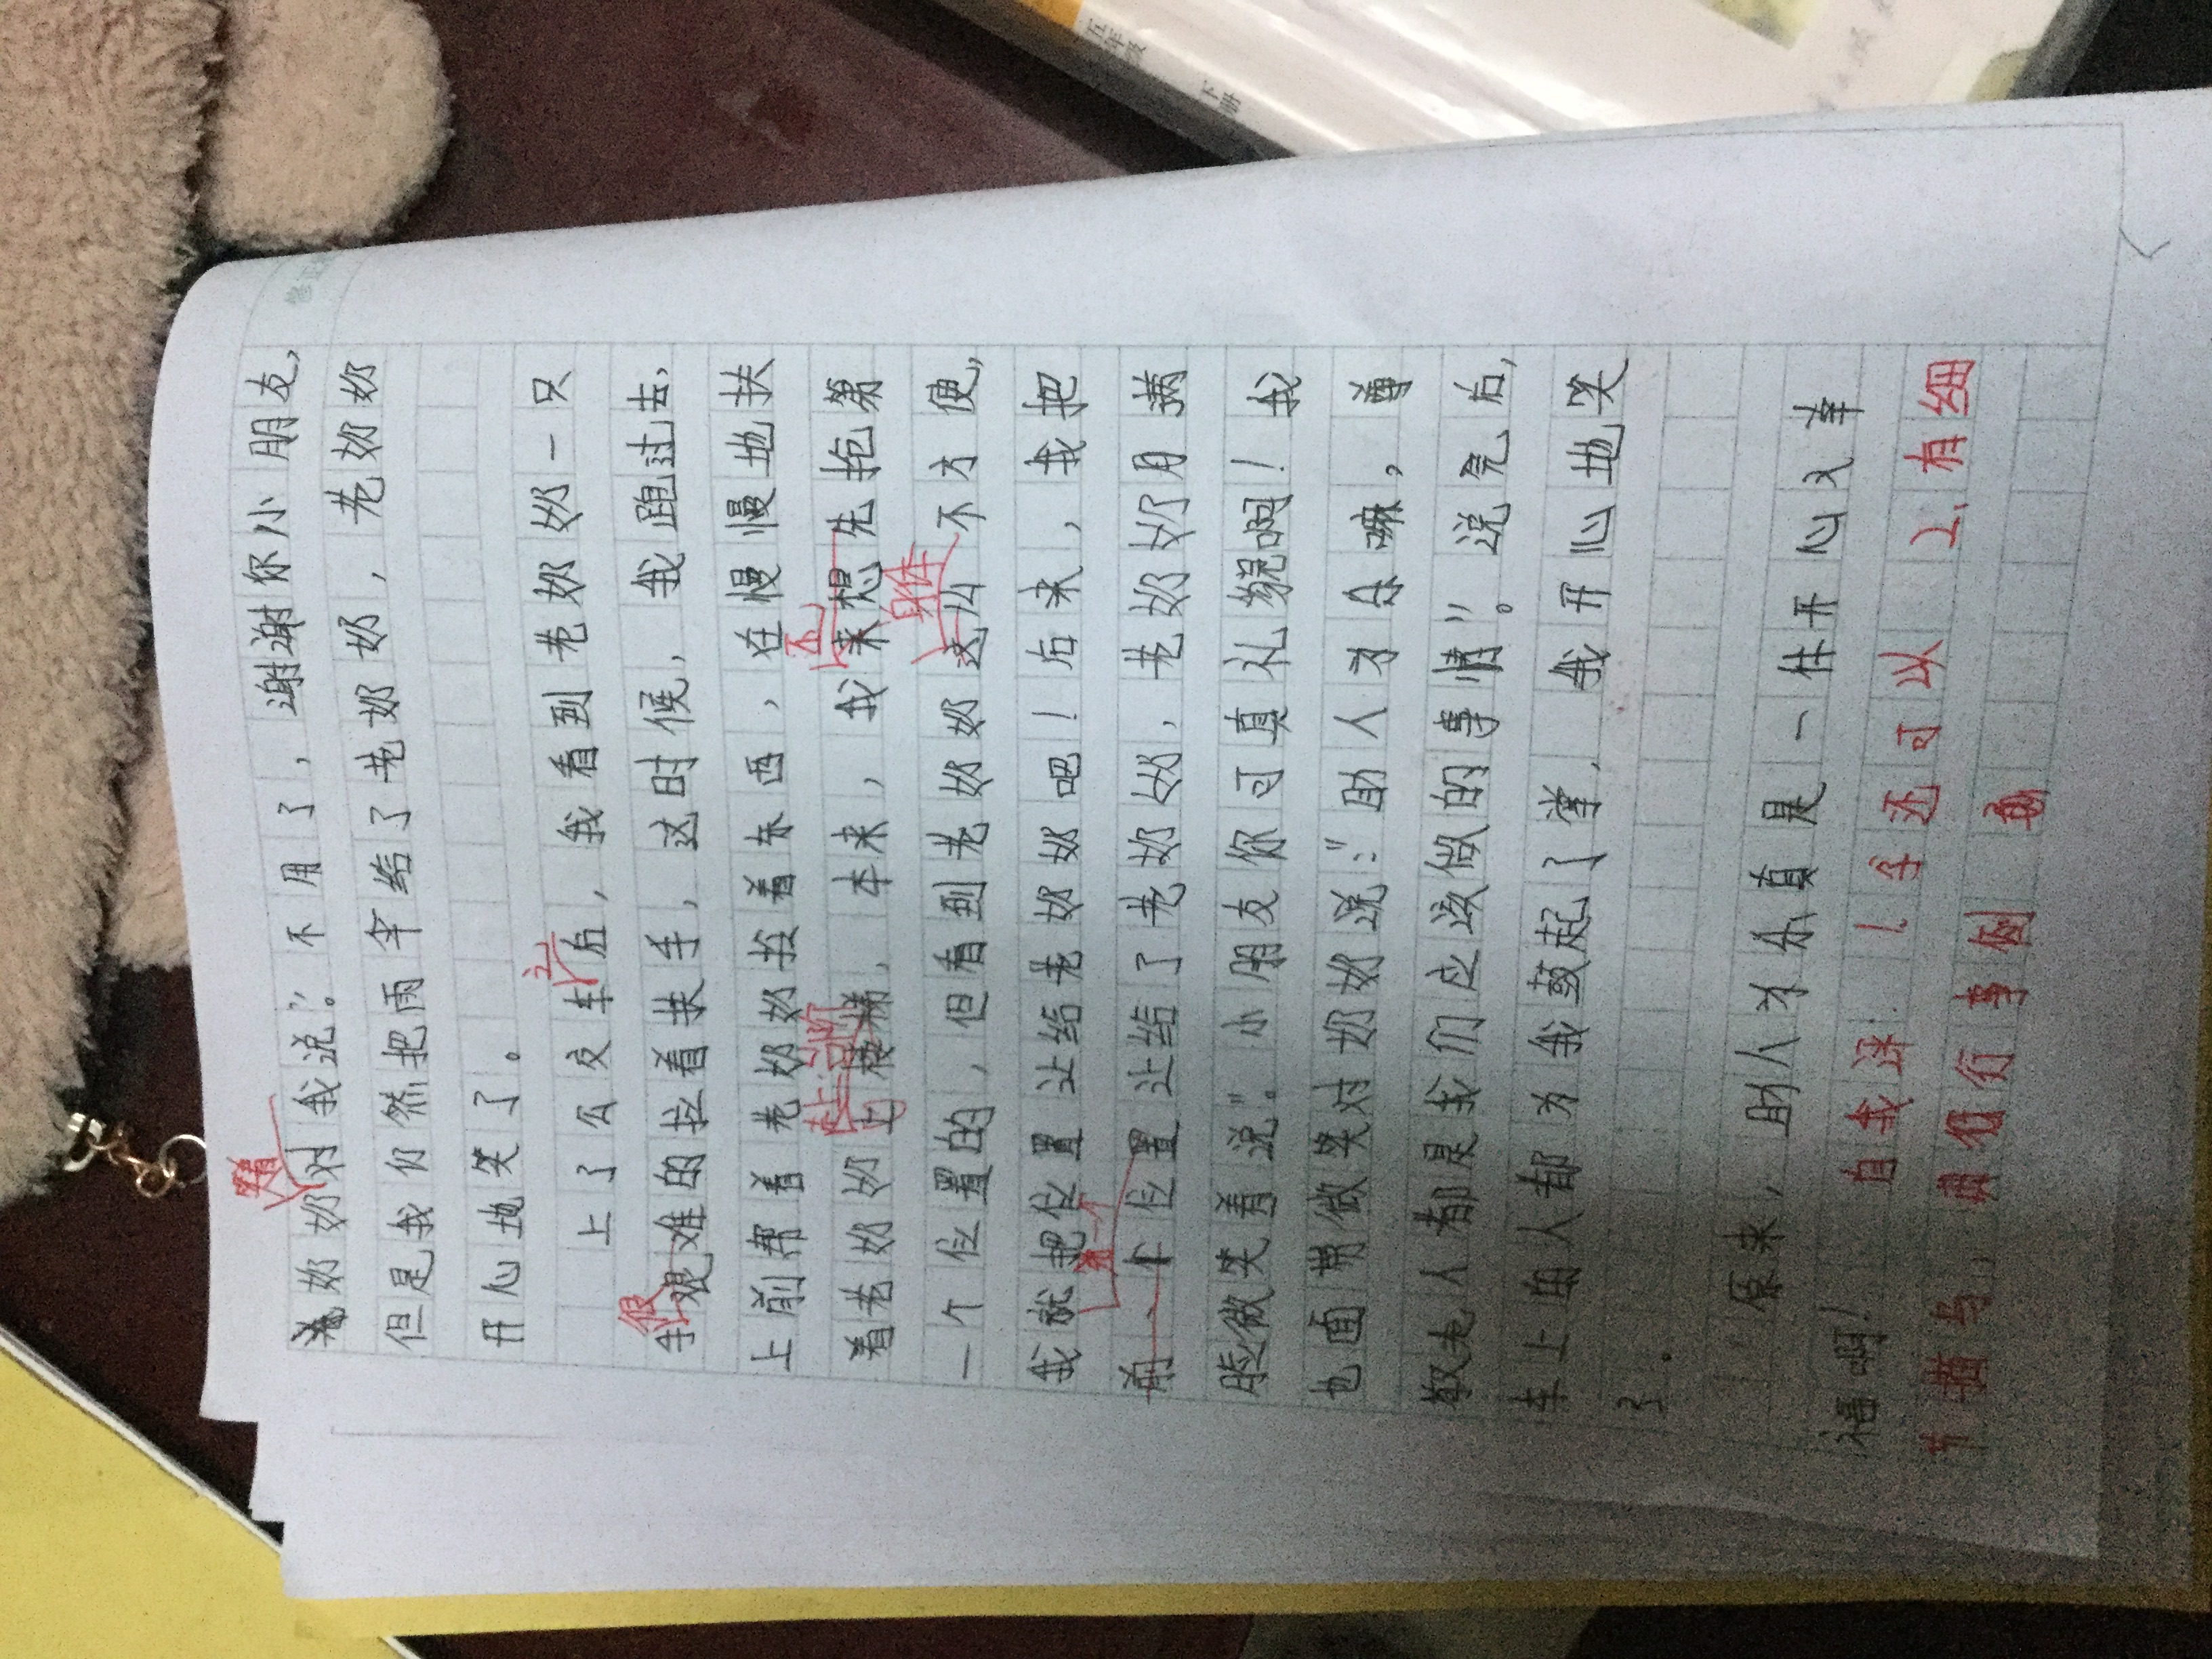 五年级 下册
笑着
奶奶对我说:"不用了,谢谢你小朋友,
但是我仍然把雨伞给了老奶奶,老奶奶
开心地笑了。
之
上了公交车后,我看到老奶奶一只
很
手艰难的拉着扶手,这时候,我跑过去,
上前帮着老奶奶拉着东西,在慢慢地扶
台阶 还
着老奶奶上楼梯,本来,我来想先抢第
身体
一个位置的,但看到老奶奶这么不方便,
我就把位置让给老奶奶吧!后来,我把
第一个
前一个位置让给了老奶奶,老奶奶了用满
脸微笑着说"。小朋友你可真礼貌啊!我
也面带微笑对奶奶说:"助人为乐嘛,尊
敬老人都是我们应该做的事情"。说完后,
车上的人都为我鼓起了掌,我开心地笑
了。
原来,助人为乐真是一件开心又幸
福啊!
自我评:1.字还可以 2.有细
节描写,
事例